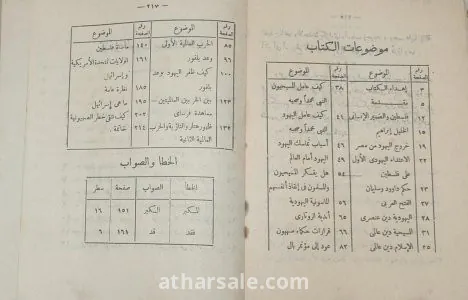 — ٢١٦ —
موضوعات الكتاب
رقم الصفحة الموضوع رقم الصفحة الموضوع
٣ إهداء الكتاب ٣٨ كيف عامل المسيحيون
٥ مقدمة النبي محمداً وصحبه
١٢ فلسطين والضمير الإنساني ٤٢ كيف عامل اليهود
١٥ الخليل إبراهيم النبي محمداً وصحبه
١٩ خروج اليهود من مصر ٤٧ أسباب اليهود
٢٢ الاعتداء اليهودي الأول ٤٩ اليهود أمام العالم
على فلسطين ٥٤ هل يفكر المسيحيون
٢٣ حكم داوود وسليمان والمسلمون في إنقاذ أنفسهم
٢٧ الفتح العربي ٥٦ الماسونية اليهودية
٢٨ اليهودية دين عنصري ٦٥ أندية الروتاري
٣١ المسيحية دين عالمي ٦٦ قرارات حكماء صهيون
٣٥ الإسلام دين عالمي ٨٢ عود إلى مؤتمر بال
— ٢١٧ —
رقم الصفحة الموضوع رقم الصفحة الموضوع
٨٥ الحرب العالمية الأولى ١٥٠ مأساة فلسطين
٩٦ وعد بلفور ١٦١ الولايات المتحدة الأمريكية
١٠٠ كيف ظفر اليهود بوعد وإسرائيل
بلفور ١٨٥ نظرة عامة
١٢٣ بين الحربين العالميتين ١٩٥ ماهي إسرائيل
معاهدة فرساي ٢٠٢ كيف الصهيونية
١٣٤ ظهور هتلر والنازية والحرب ٢١٤ خاتمة
العالمية الثانية
الخطأ والصواب
الخطأ الصواب صفحة سطر
١٦
فقد قد ١٦٨ ٦
atharsale.com